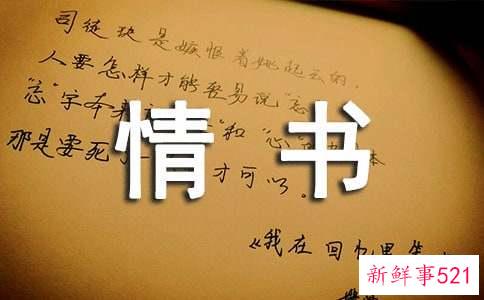 司徒玦是嫉恨着姚起云的,
人要怎样才能轻易说“忘
“忘”字本来 ”和“心”
那是要死 才可以。
情书
《我在回忆里等
新鲜事521